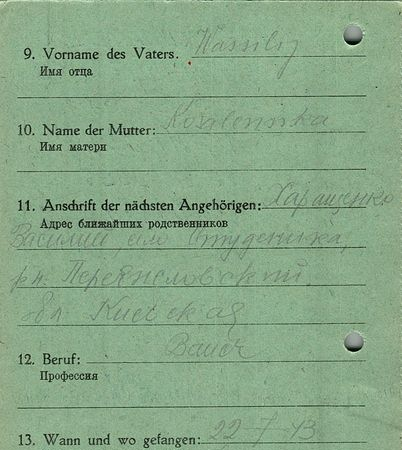 9. Vorname des Vaters. Wassilij
Имя отца
10. Name der Mutter:
Имя матери
11. Anschrift der nächsten Angehörigen: Харащенко
Адрес ближайших родственников
Василий село Студеника,
р-н. Переяславский
обл Киевская
12. Beruf: Bauer
Профессия
13. Wann und wo gefangen: 22-7-43